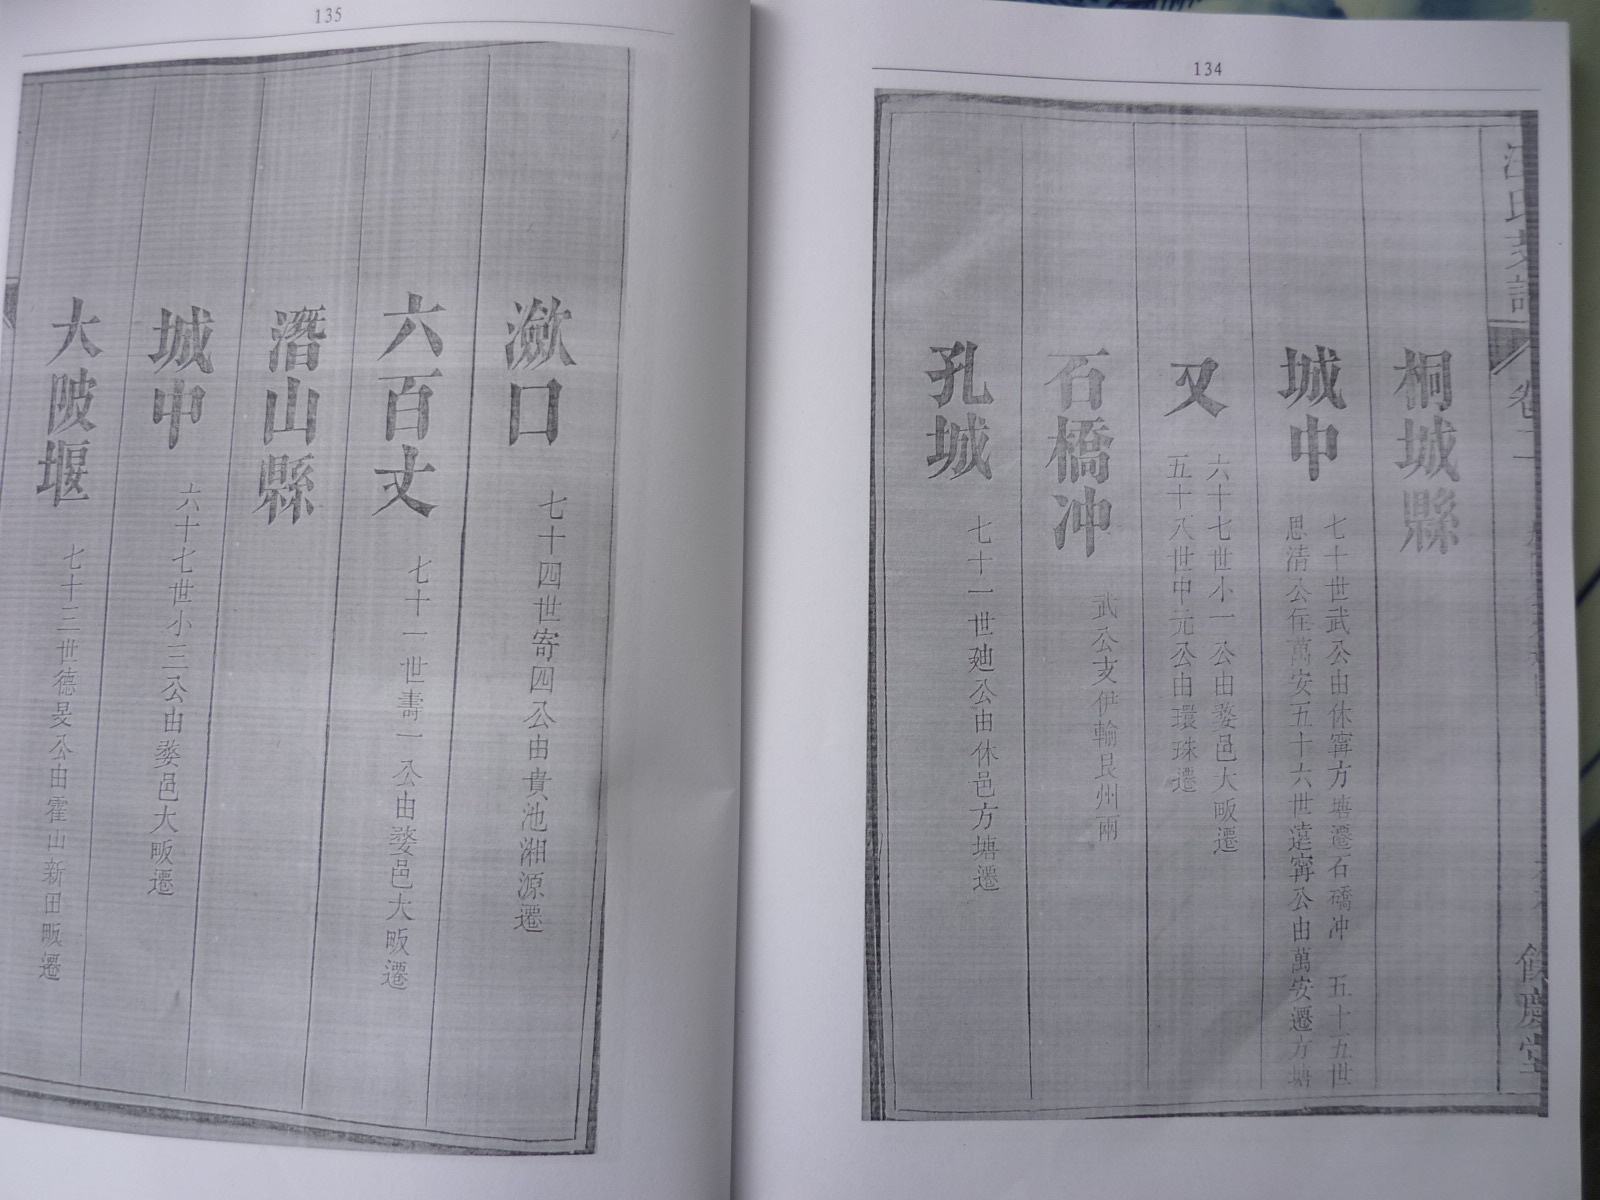 134
桐城縣
城中
七十世武公由休寧方塘遷石磷冲 五十五世
思清公住萬安五十六世遠寧公由萬安遷方塘
又
六十七世小一公由婺邑大畈遷
五十八世中元公由環珠遷
石橋冲
武公支伊輪良州兩
孔城
七十一世廸公由休邑方塘遷
餘慶堂
135
潋口
七十四世寄四公由貴池湘源遷
六百丈
七十一世壽一公由婺邑大畈遷
潛山縣
城中
六十七世小三公由婺邑大畈遷
大陂堰
七十三世德旻公由霍山新田畈遷